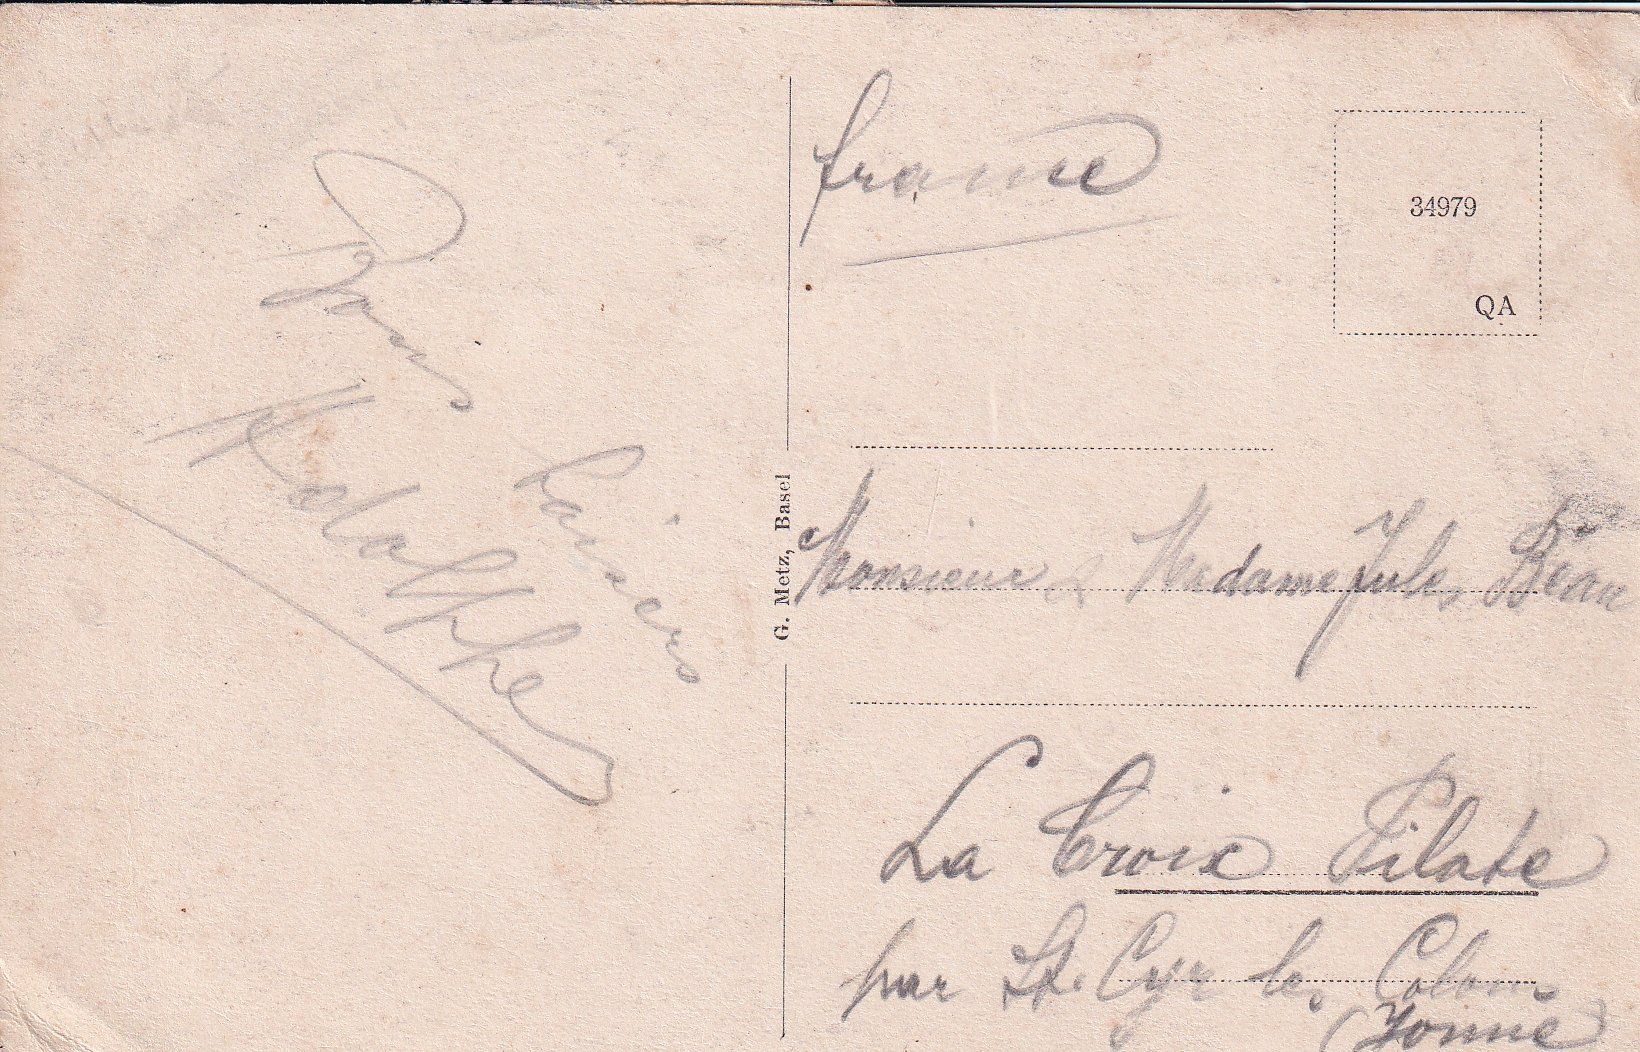 Bons
Baisers
france
34979
QA
G. Metz, Basel
Monsieur & Madame Jules Béau
La Croix Pilate
par St. Cyr les Colons
(Yonne)